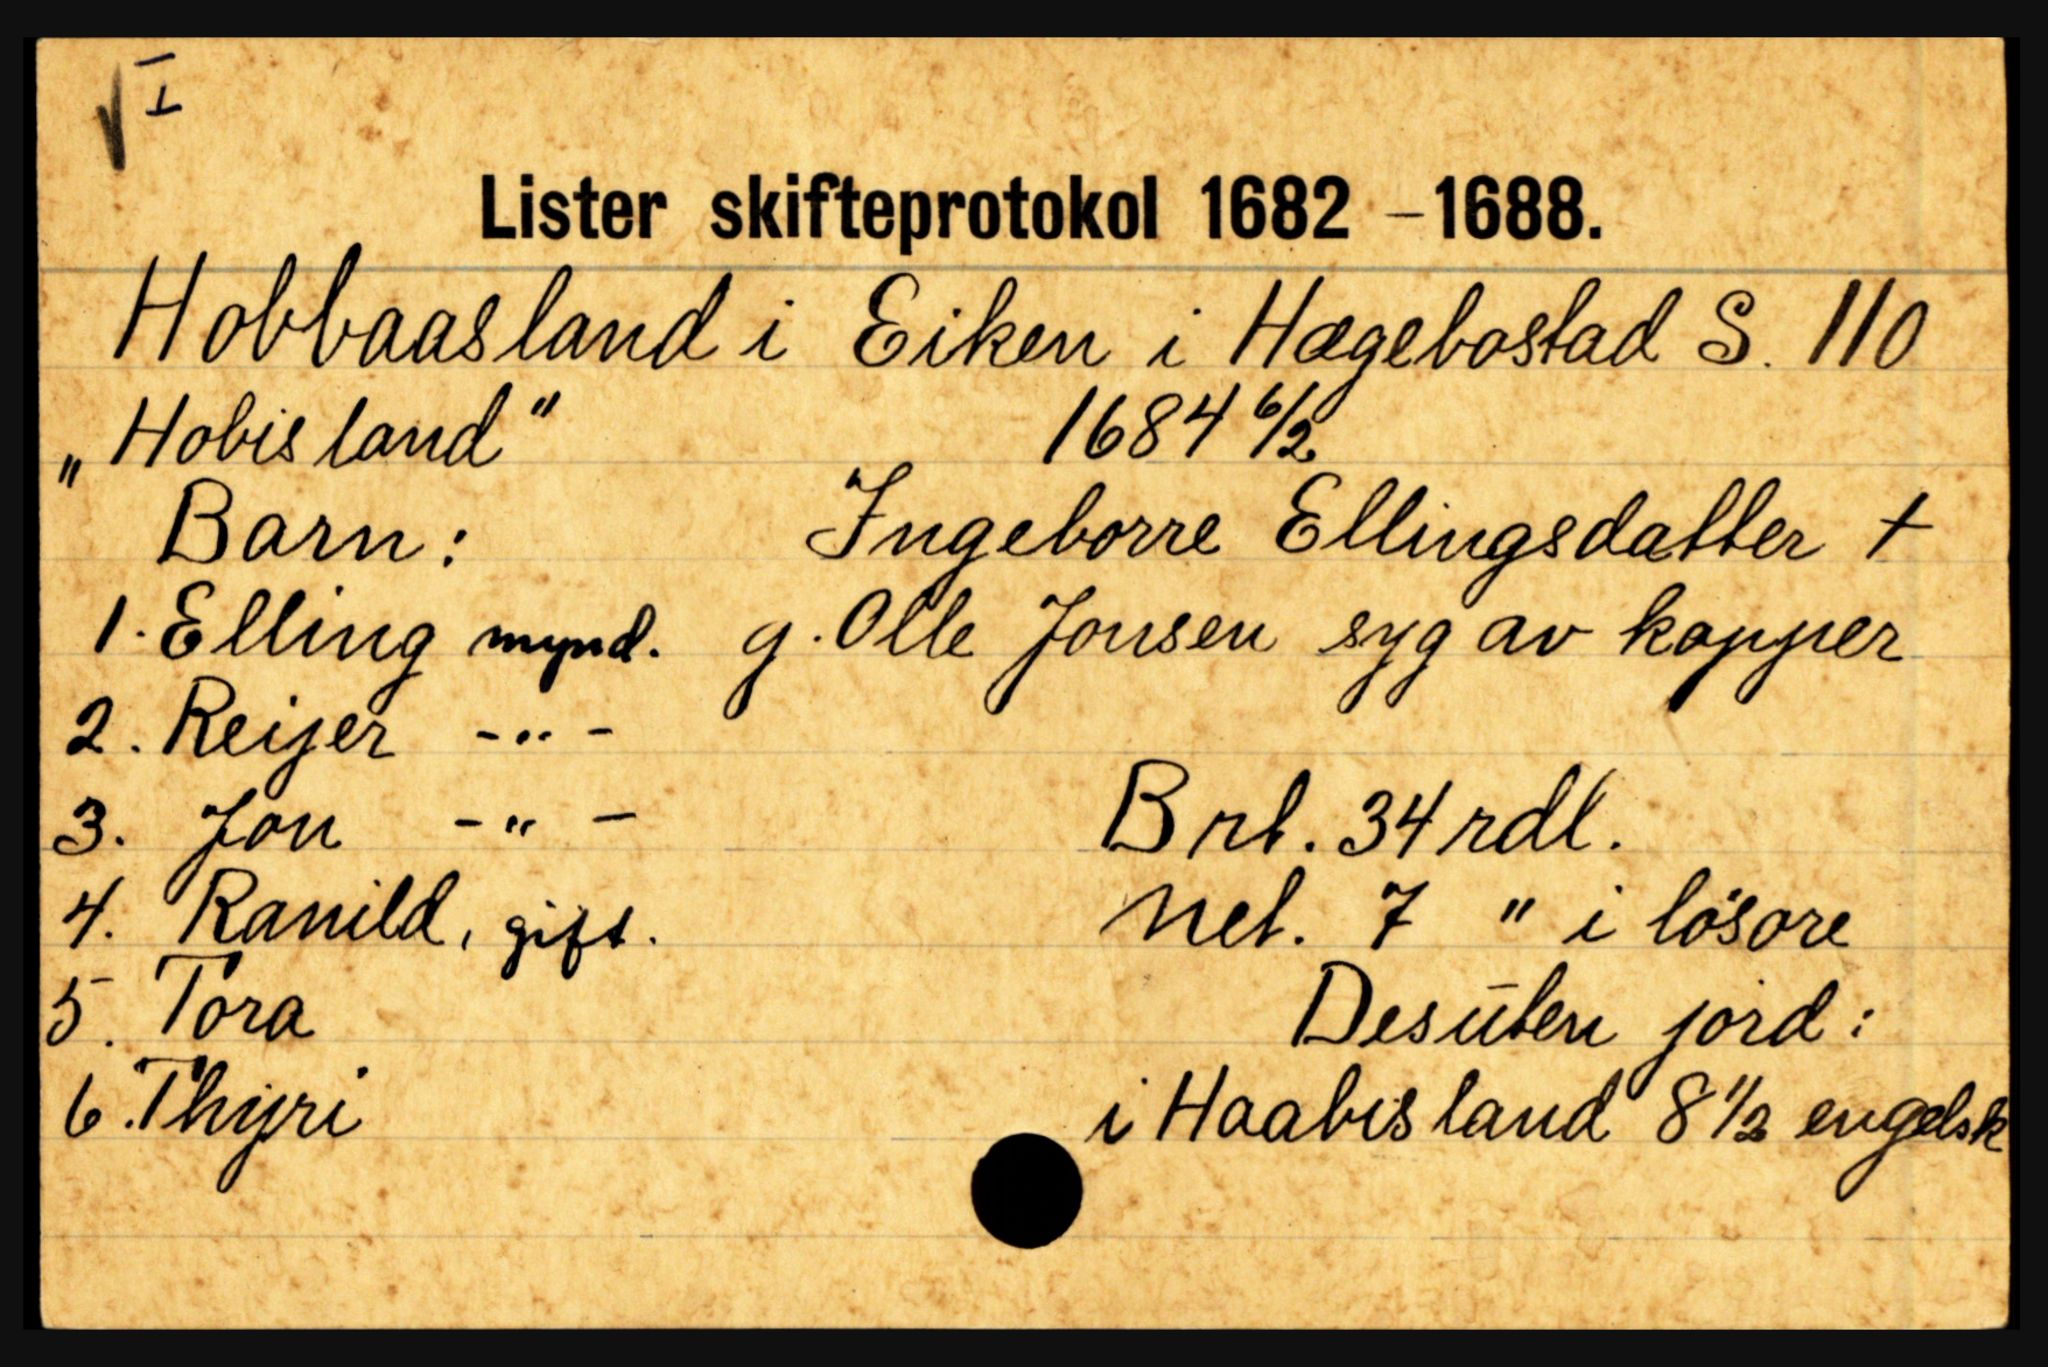 √ I
Lister skifteprotokol 1682 – 1688.
Hobbaasland i Eiken i Hægebostad S. 110
„Hobisland" 1684 6/2
Barn: Ingeborre Ellingsdatter +
1. Elling mynd. g. Olle Jonsen syg av kopper
2. Reijer -"-
3. Jon -"-
Brt. 34 rdl.
4. Ranild, gift.
Net. 7 " i lösöre
5. Tora
Desuten jord:
6. Thyri
i Haabisland 8 1/2 engelsk